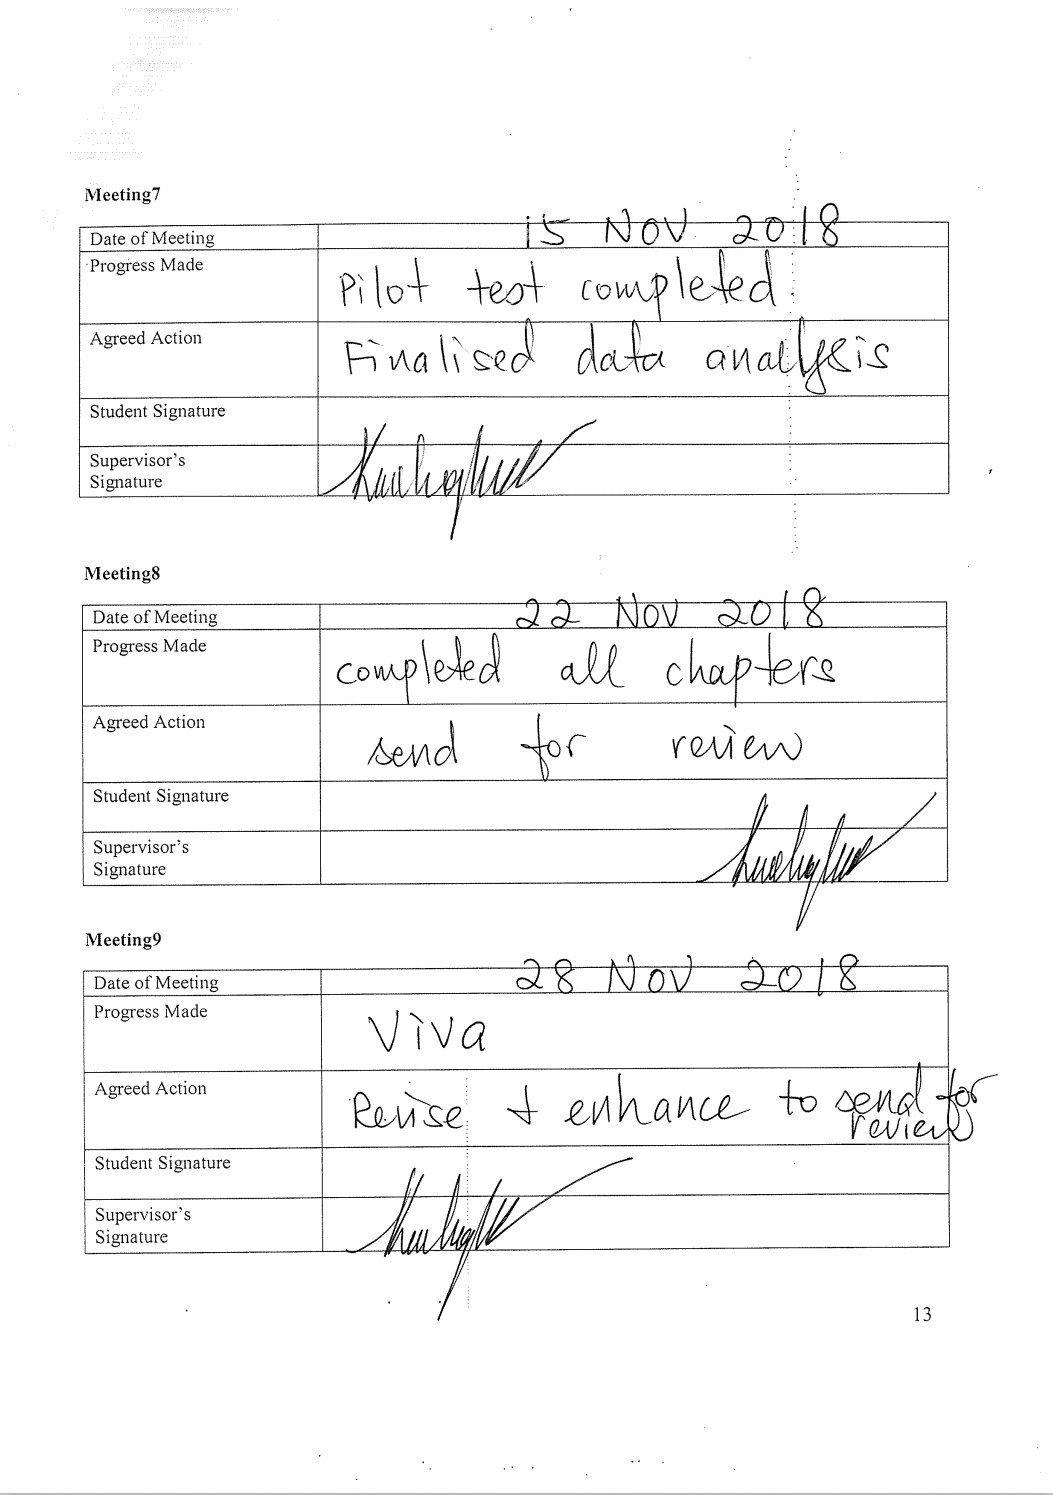 Meeting7
Date of Meeting 15 NOV 2018
Progress Made Pilot test completed.
Agreed Action Finalised data analysis
Student Signature
Supervisor's
Signature
Meeting8
Date of Meeting 22 NOV 2018
Progress Made completed all chapters
Agreed Action send for review
Student Signature
Supervisor's
Signature
Meeting9
Date of Meeting 28 NOV 2018
Progress Made Viva
Agreed Action Revise & enhance to send for
review
Student Signature
Supervisor's
Signature
13